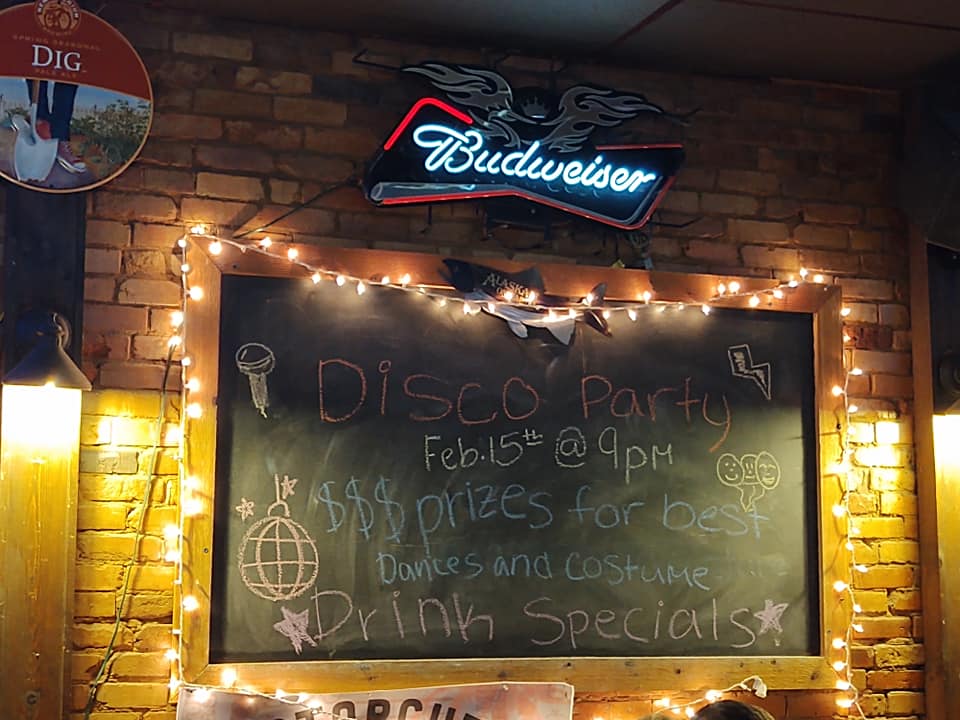 SPRING SEASONAL
DIG
PALE ALE
Budweiser
ALASKAN
Disco Party
Feb. 15th @ 9pm
$$$ prizes for best
Dances and costume
Drink Specials